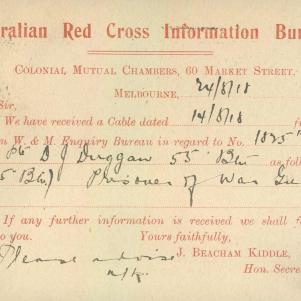 ralian Red Cross Information Bu
Colonial Mutual Chambers, 60 Market Street,
Melbourne, 24/8/18
Sir,
We have received a Cable dated 14/8/18 f
n W. & M. Enquiry Bureau in regard to No. 1835
Pte D J Duggan 55 Btn as follo
5 Btn) Prisoner of War
If any further information is received we shall f
to you. Yours faithfully,
Please advise
n/k. J. Beacham Kiddle,
Hon. Secre